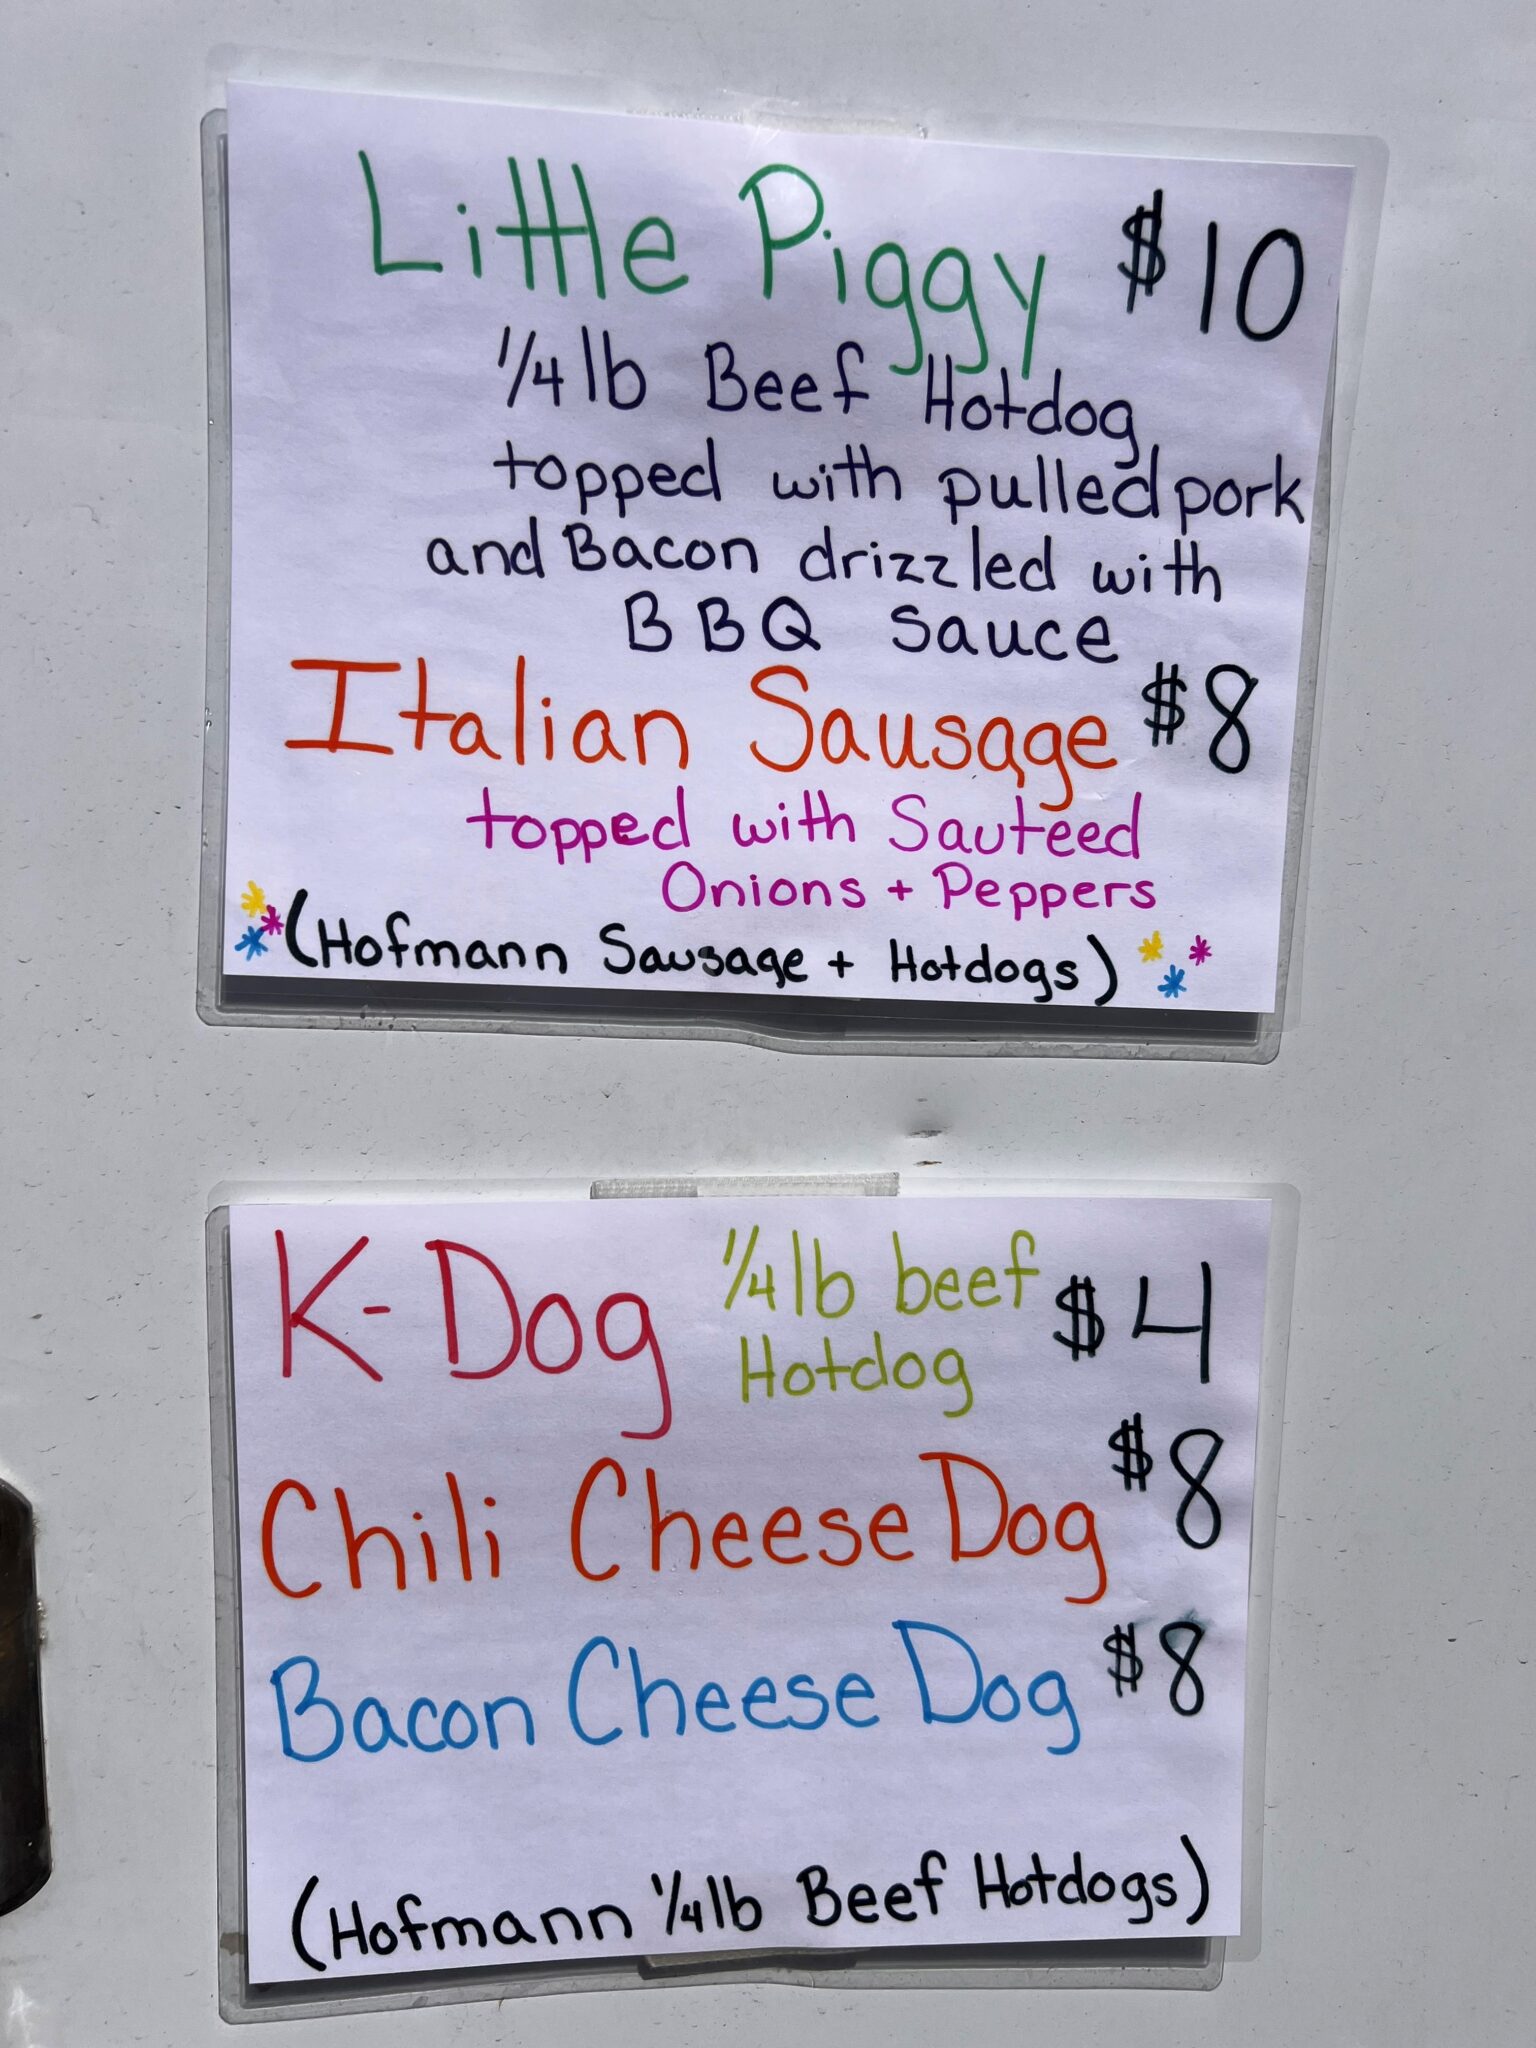 Little Piggy $10
1/4 lb Beef Hotdog
topped with pulled pork
and Bacon drizzled with
BBQ Sauce
Italian Sausage $8
topped with Sauteed
Onions + Peppers
(Hofmann Sausage + Hotdogs)
K-Dog 1/4 lb beef Hotdog $4
Chili Cheese Dog $8
Bacon Cheese Dog $8
(Hofmann 1/4 lb Beef Hotdogs)